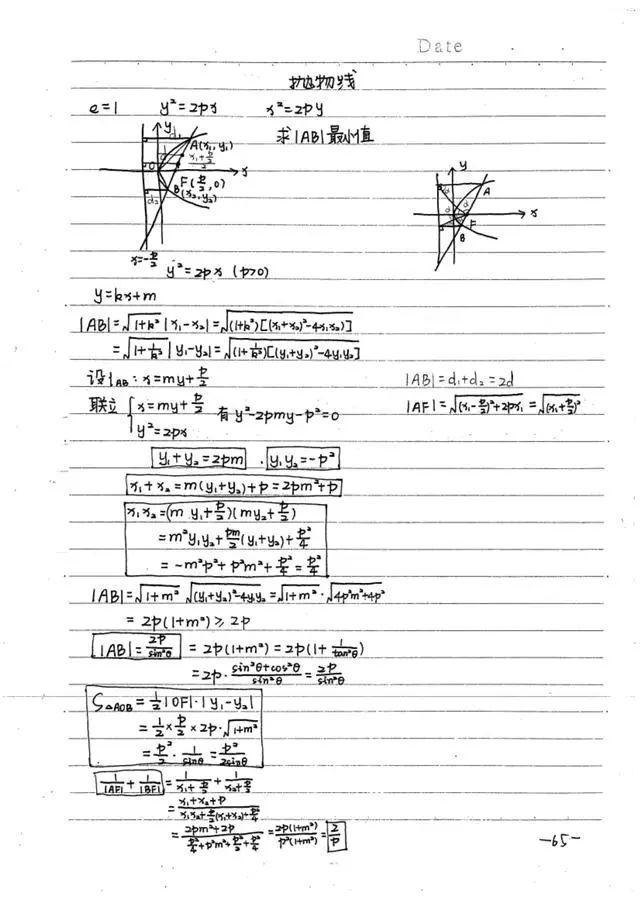 Date
抛物线
e=1 y²=2px x²=2py
求|AB|最小值
y
d₁
A(x₁, y₁)
d
x₁+p/2
O
x
F(p/2, 0)
B(x₂, y₂)
d₂
x=-p/2
y²=2px (p>0)
y
A
d
d
x
F
B
y=kx+m
|AB|=√(1+k²) |x₁-x₂|=√((1+k²)[(x₁+x₂)²-4x₁x₂)]
=√(1+1/k²) |y₁-y₂|=√((1+1/k²)[(y₁+y₂)²-4y₁y₂]
设l_AB: x=my+p/2
|AB|=d₁+d₂=2d
联立 { x=my+p/2 y²=2px 有 y²-2pmy-p²=0
|AF|=√((x₁-p/2)²+2px₁)=√((x₁+p/2)²)
y₁+y₂=2pm . y₁y₂=-p²
x₁+x₂=m(y₁+y₂)+p=2pm²+p
x₁x₂=(m y₁+p/2)(my₂+p/2)
=m²y₁y₂+pm/2(y₁+y₂)+p²/4
=-m²p²+p²m²+p²/4=p²/4
|AB|=√(1+m²) √((y₁+y₂)²-4y₁y₂)=√(1+m²)·√(4p²m²+4p²)
=2p(1+m²)≥2p
|AB|=2p/sin²θ =2p(1+m²)=2p(1+1/tan²θ)
=2p·(sin²θ+cos²θ)/sin²θ=2p/sin²θ
S△AOB=1/2|OF|·|y₁-y₂|
=1/2×p/2×2p·√(1+m²)
=p²/2·1/sinθ=p²/2sinθ
1/|AF|+1/|BF|=1/(x₁+p/2)+1/(x₂+p/2)
=(x₁+x₂+p)/(x₁x₂+p/2(x₁+x₂)+p²/4)
=(2pm²+2p)/(p²/4+p²m²+p²/2+p²/4)=2p(1+m²)/p²(1+m²)=2/p
-65-